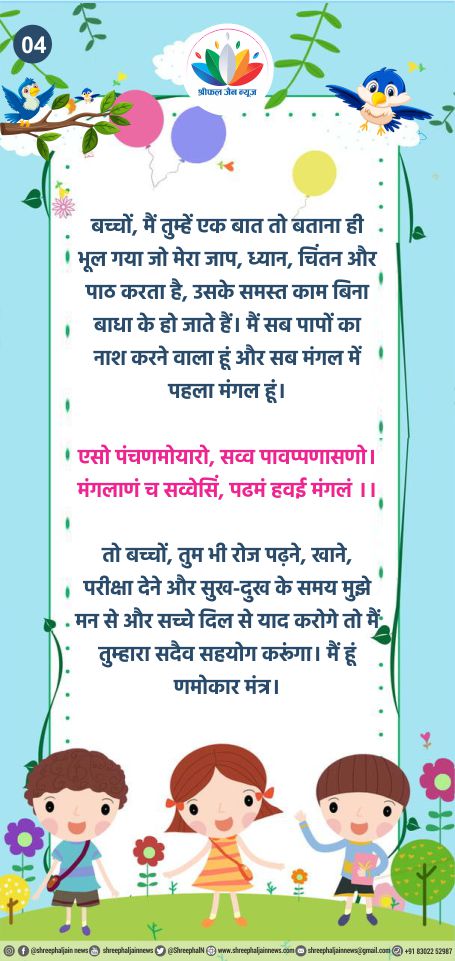 04
श्रीफल जैन न्यूज
बच्चों, मैं तुम्हें एक बात तो बताना ही
भूल गया जो मेरा जाप, ध्यान, चिंतन और
पाठ करता है, उसके समस्त काम बिना
बाधा के हो जाते हैं। मैं सब पापों का
नाश करने वाला हूं और सब मंगल में
पहला मंगल हूं।
एसो पंचणमोयारो, सव्व पावप्पणासणो।
मंगलाणं च सव्वेसिं, पढमं हवई मंगलं ।।
तो बच्चों, तुम भी रोज पढ़ने, खाने,
परीक्षा देने और सुख-दुख के समय मुझे
मन से और सच्चे दिल से याद करोगे तो मैं
तुम्हारा सदैव सहयोग करूंगा। मैं हूं
णमोकार मंत्र।
@shreephaljain news shreephaljainnews @ShreephalN www.shreephaljainnews.com shreephaljainnews@gmail.com +91 83022 52987